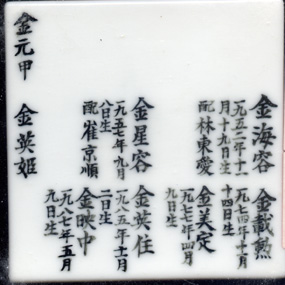 金海容
一九五二年十一
月十九日生
配林東愛
金載勲
一九七四年十月
十四日生
金美定
一九七七年四月
九日生
金星容
一九五七年九月
八日生
配崔京順
金英住
一九八五年十一月
二日生
金映中
一九八七年五月
九日生
金元甲
金英姫